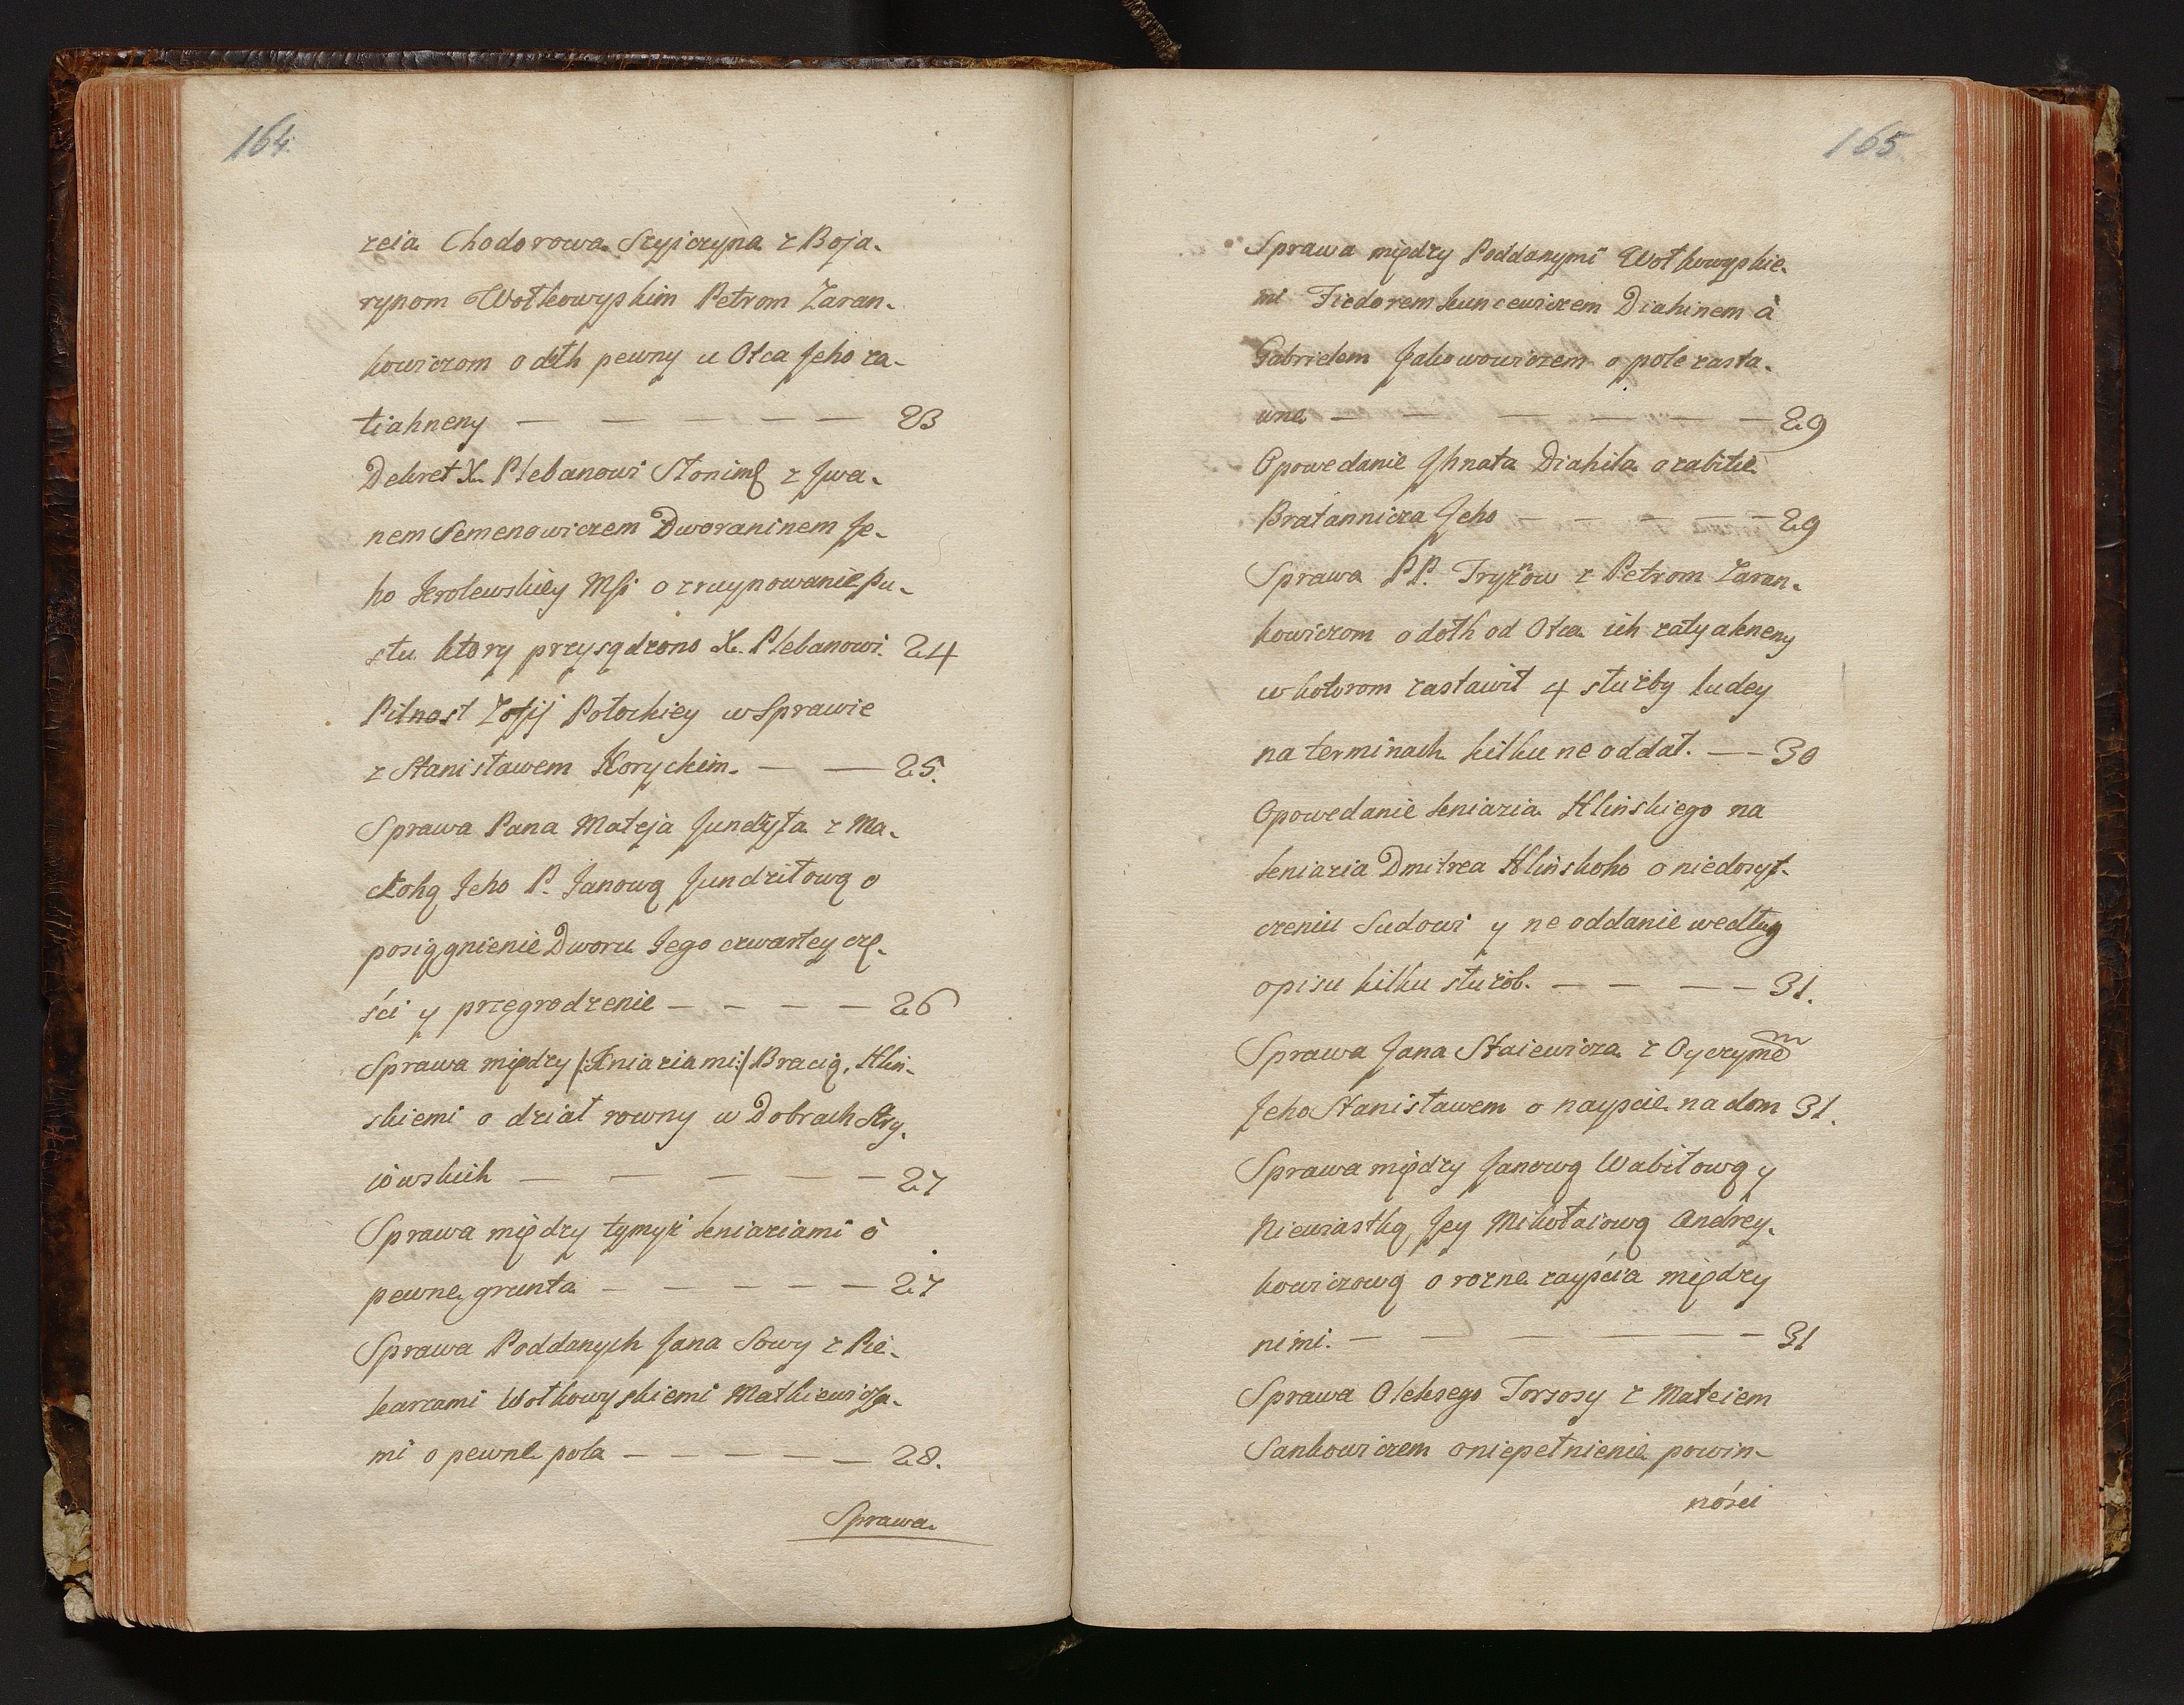 164.
reia Chodorowa Szyiczyna z Boja-
rynom Wołkowyskim Petrom Zaran-
kowiczom o dołh pewny u Otca Jeho za-
tiahneny — — — — — 23
Dekret X. Plebanowi Słonimſ z Jwa-
nem Semenowiczem Dworaninem Je-
ho Krolewskiey Mſi o zruynowanie Pu-
stu ktory przysądzono X. Plebanowi. 24
Pilnost Zofij Potockiey w Sprawie
z Stanisławem Koryckim. — — 25.
Sprawa Pana Mateja Jundżyła z Ma-
Jeho P. Janową Jundziłową o
posiągnienie Dworu Jego czwartey czę-
ści y przegrodzenie — — — — 26
Sprawa między /:Kniaziami:/ Bracią, Hlin-
skiemi o dział rowny w Dobrach Stry-
iowskich — — — — — 27
Sprawa między tymyż kniaziami ò
pewne grunta — — — — — 27
Sprawa Poddanych Jana Sowy z Pie-
karzami Wołkowyskiemi Matkiewicza-
mi o pewne pola — — — — — 28.
Sprawa
165
Sprawa między Poddanymi Wołkowyskie-
mi Fiedorem Kuncewiczem Diahinem à
Gabrielem Jakowowiczem o pole zasta-
wne — — — — — — 29
Opowedanie Jhnata Diahila o zabitie
Bratannicza Jeho — — — — — 29
Sprawa PP. z Petrom Zaran-
kowiczom o dołh od Otca ich zatyahneny
w kotorom zastawił 4 służby ludey
na terminach kilku ne oddał. — — 30
Opowedanie kniazia Hlińskiego na
kniazia Dmitrea Hlińskoho o niedosyt-
czeniu Sudowi y ne oddanie według
opisu kilku służb. — — — — 31.
Sprawa Jana Staiewicza z Oyczymem
Jeho Stanisławem o nayscie na dom 31.
Sprawa między Janową Wabiłową y
Niewiastką Jey Mikołaiową Andrey-
kowiczową o rozne zayścia między
nimi. — — — — — — 31
Sprawa Oleksego Torsosy z Mateiem
Sankowiczem o niepełnienie powin-
ności